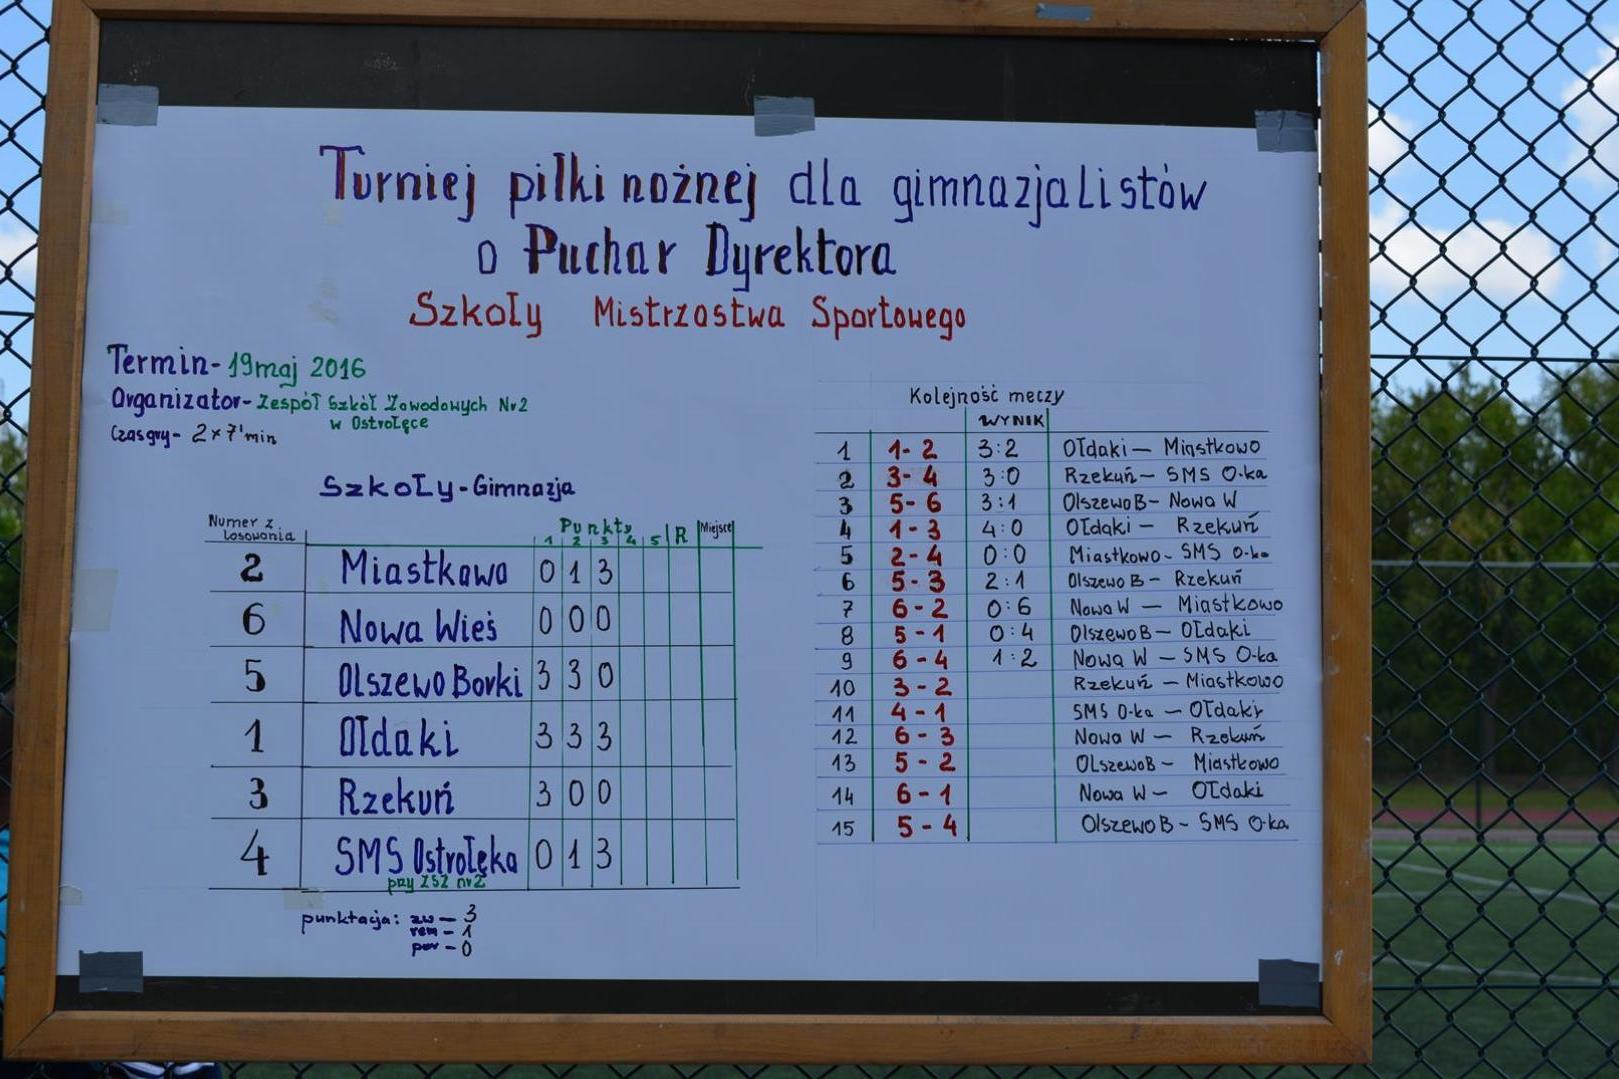 Turniej piłki nożnej dla gimnazjalistów
o Puchar Dyrektora
Szkoły Mistrzostwa Sportowego
Termin- 19maj 2016
Organizator- Zespół Szkół Zawodowych Nr2
w Ostrołęce
Czas gry- 2×7'min
Szkoły-Gimnazja
Numer z losowania Punkty 1 2 3 4 5 R Miejsce
2 Miastkowo 0 1 3
6 Nowa Wieś 0 0 0
5 Olszewo Borki 3 3 0
1 Ołdaki 3 3 3
3 Rzekuń 3 0 0
4 SMS Ostrołęka 0 1 3
przy ZSZ nr2
punktacja: zw — 3
rem — 1
por — 0
Kolejność meczy
WYNIK
1 1-2 3:2 Ołdaki — Miastkowo
2 3-4 3:0 Rzekuń — SMS O-ka
3 5-6 3:1 Olszewo B — Nowa W
4 1-3 4:0 Ołdaki — Rzekuń
5 2-4 0:0 Miastkowo - SMS O-ka
6 5-3 2:1 Olszewo B — Rzekuń
7 6-2 0:6 Nowa W — Miastkowo
8 5-1 0:4 Olszewo B — Ołdaki
9 6-4 1:2 Nowa W — SMS O-ka
10 3-2 Rzekuń — Miastkowo
11 4-1 SMS O-ka — Ołdaki
12 6-3 Nowa W — Rzekuń
13 5-2 Olszewo B — Miastkowo
14 6-1 Nowa W — Ołdaki
15 5-4 Olszewo B - SMS O-ka